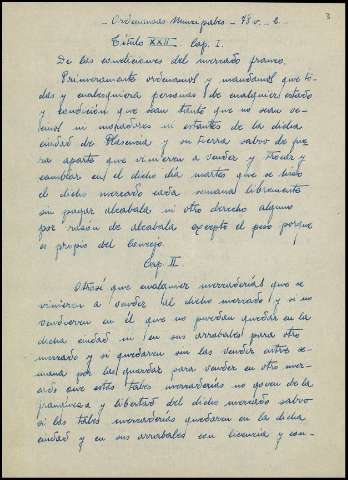 3
- Ordenanzas Municipales - 78 v. - 2 -
Título XXII Cap. I.
De las condiciones del mercado franco.
Primeramente ordenamos y mandamos que to-
das y cualesquiera personas de cualquier estado
y condición que sean tanto que no sean ve-
cinos ni moradores ni estantes de la dicha
ciudad de Plasencia y su tierra salvo de fue-
ra aparte que vinieren a vender y trocar y
cambiar en el dicho día martes que se hace
el dicho mercado cada semana libremente
sin pagar alcabala ni otro derecho alguno
por razón de alcabala excepto el peso porque
es propio del Concejo.
Cap. II
Otrosí que cualquier mercaderías que se
vinieren a vender al dicho mercado y si no
vendieren en él que no puedan quedar en la
dicha ciudad ni en sus arrabales para otro
mercado y si quedaren sin las vender entre se-
mana por las guardar para vender en otro mer-
cado que estas tales mercaderías no gocen de la
franqueza y libertad del dicho mercado salvo
si las tales mercaderías quedaren en la dicha
ciudad y en sus arrabales con licencia y con-